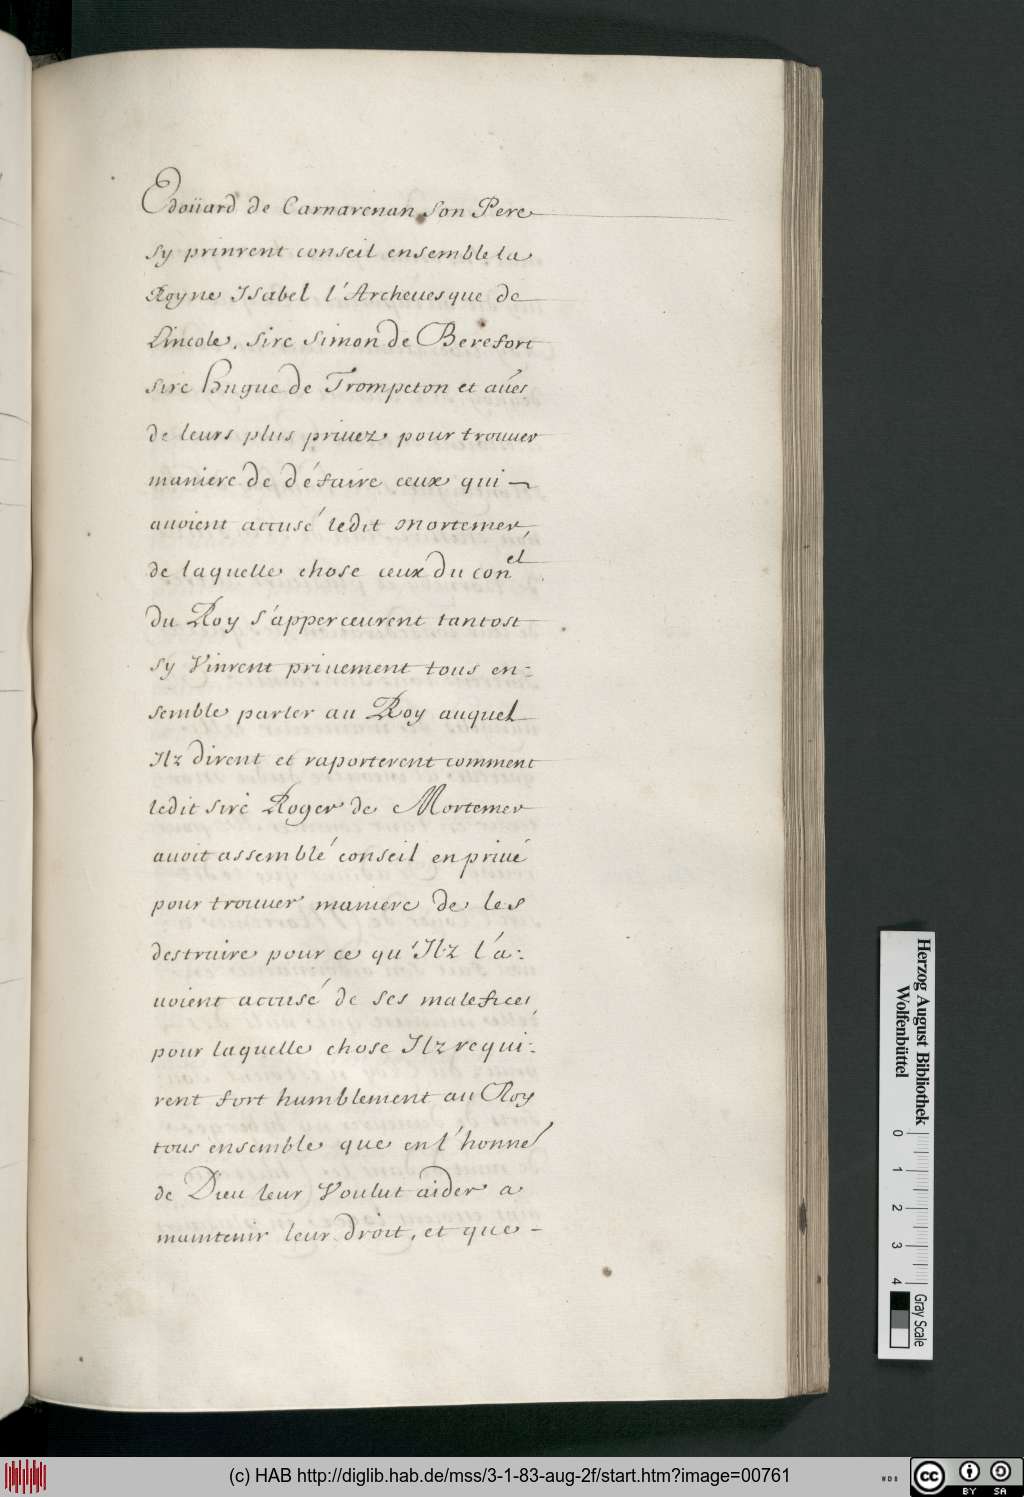 Edoüard de Carnarenan son Pere
sy prinrent conseil ensemble la
Royne Isabel l'Archeuesque de
Lincole, sire Simon de Beresort
sire Hugue de Trompeton et aües
de leurs plus priuez pour trouuer
maniere de défaire ceux qui
auoient accusé ledit Mortemer,
de laquelle chose ceux du con.el
du Roy s'apperceurent tantost
sy Vinrent priuement tous en-
semble parler au Roy auquel
Ilz dirent et raporterent comment
ledit sire Roger de Mortemer
auoit assemblé conseil en priué
pour trouuer maniere de les
destruire pour ce qu'Ilz l'a-
uoient accusé de ses malefices
pour laquelle chose Ilz requi-
rent fort humblement au Roy
tous ensemble que en l'honne.r
de Dieu leur Voulut aider a
maintenir leur droit, et que -
Herzog August Bibliothek
Wolfenbüttel
0 1 2 3 4
Gray Scale
(c) HAB http://diglib.hab.de/mss/3-1-83-aug-2f/start.htm?image=00761
WDB
cc BY SA